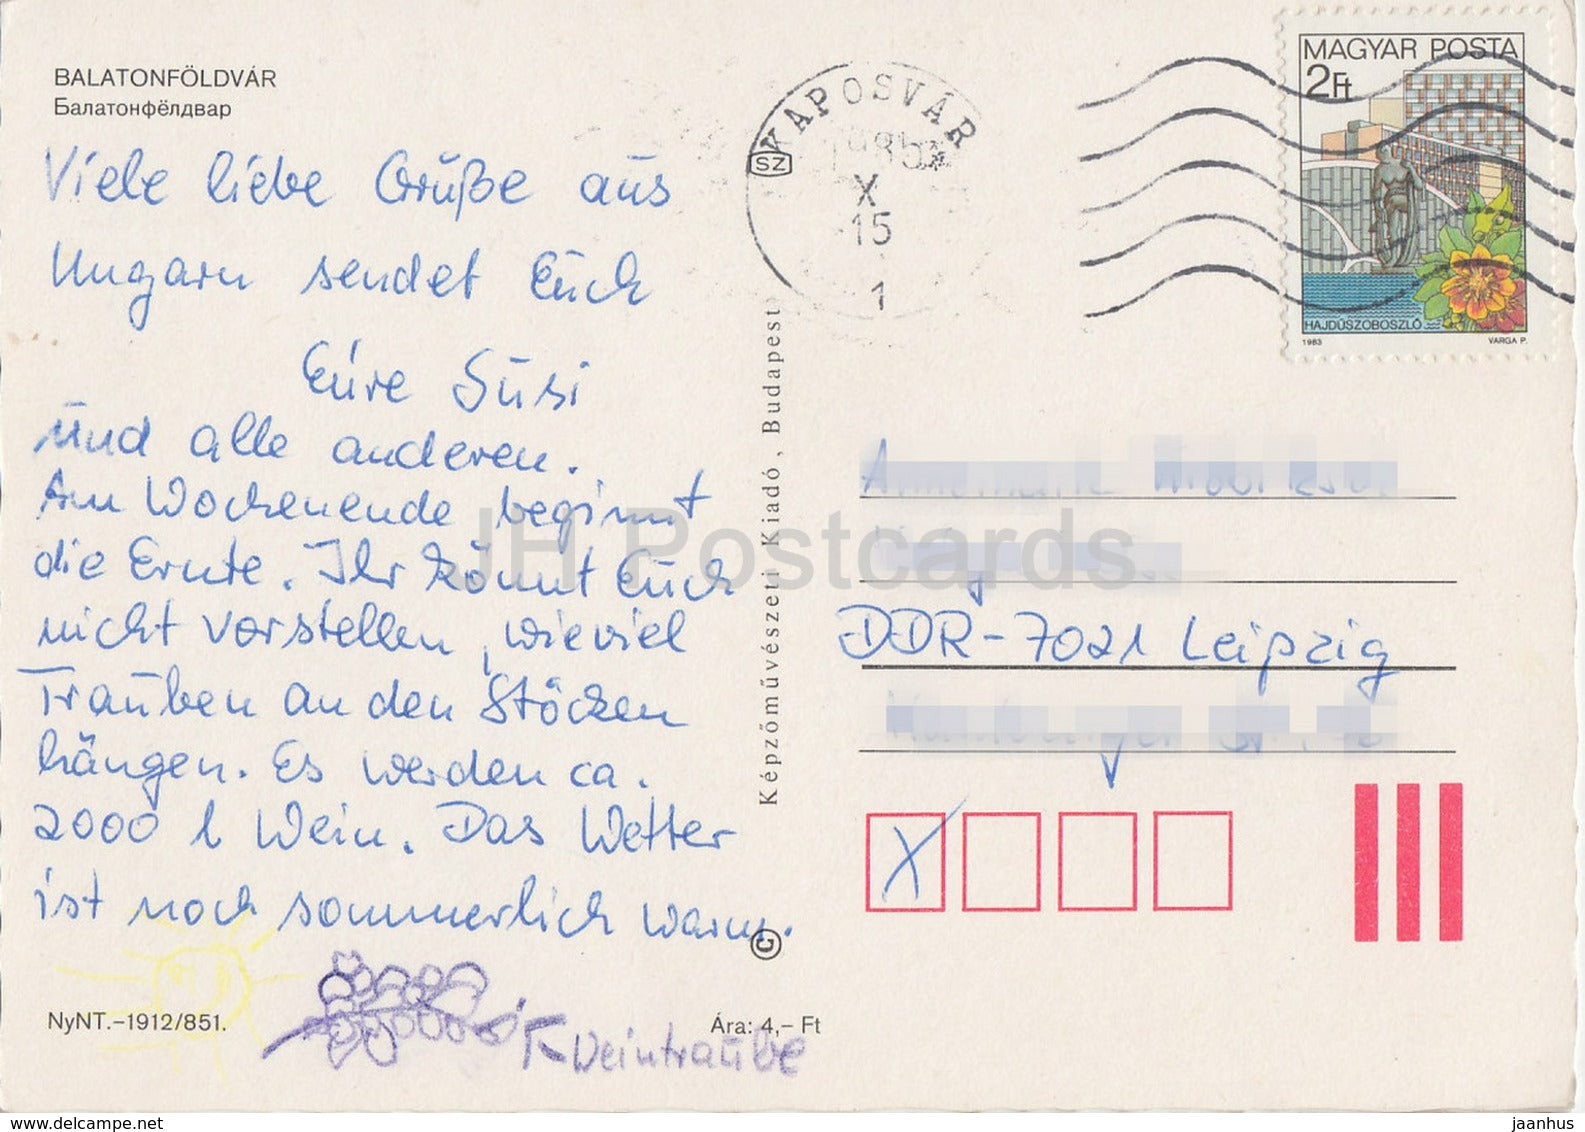 BALATONFÖLDVÁR
Балатонфёлдвар
Viele liebe Grüße aus
Ungarn sendet Euch
Eure Susi
und alle anderen.
Am Wochenende beginnt
die Ernte. Ihr könnt Euch
nicht vorstellen, wieviel
Trauben an den Stöcken
hängen. Es werden ca.
2000 l Wein. Das Wetter
ist noch sommerlich warm.
Weintraube
NyNT.-1912/851.
Ára: 4,– Ft
Képzőművészeti Kiadó, Budapest
KAPOSVÁR
SZ
1985
X
15
1
MAGYAR POSTA
2Ft
HAJDÚSZOBOSZLÓ
1983 VARGA P.
DDR-7021 Leipzig
X
JH Postcards
delcampe.net
jaanhus